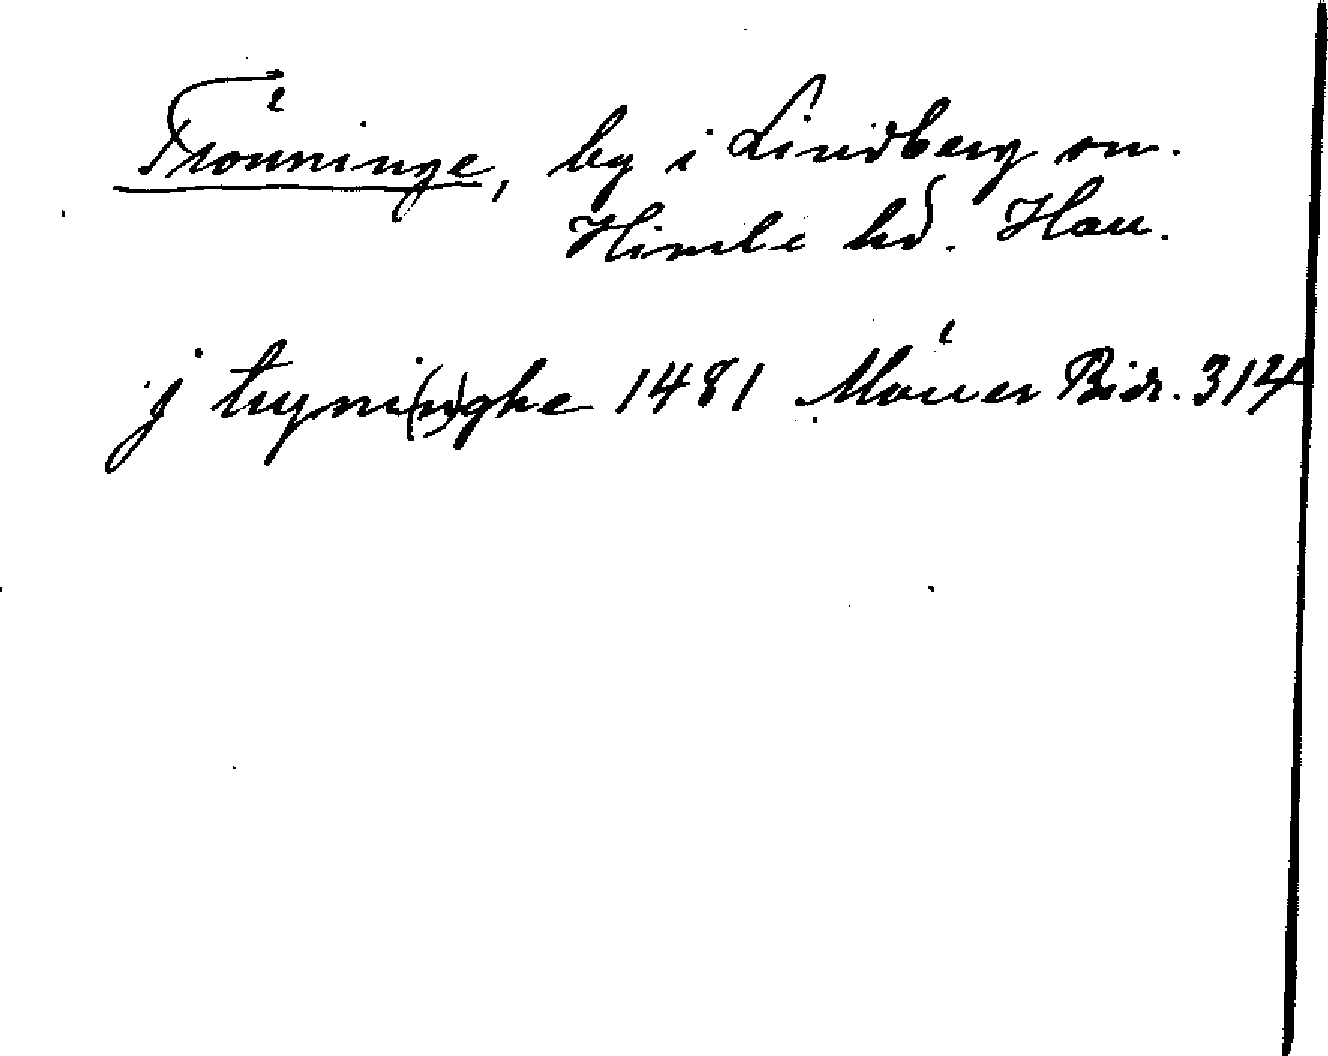 Trönninge, by i Lindberg sn.
Himle hd. Hall.
j tryni(n)ghe 1481 Möller Bidr. 314